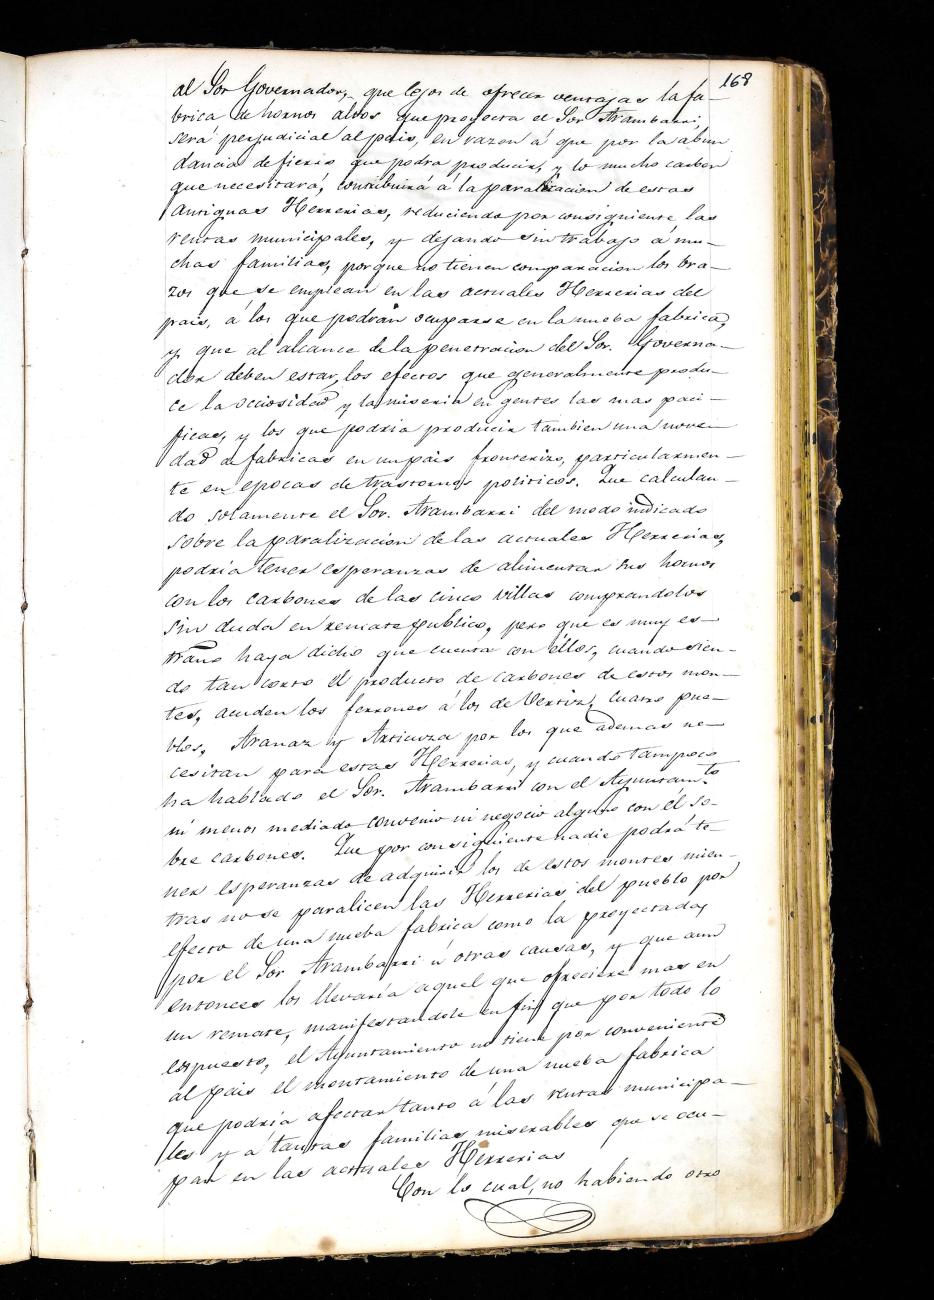 168
al Sor Governador, que lejos de ofrecer ventajas la fa-
brica de hornos altos que proyecta el Sor Arambarri,
será perjudicial al pais, en razon á que por la abun
dancia de fierro que podra producir, y lo mucho carbon
que necesitará, contribuirá á la paralizacion de estas
antiguas Herrerias, reduciendo por consiguiente las
rentas municipales, y dejando sin trabajo á mu-
chas familias, porque no tienen comparacion los bra-
zos que se emplean en las actuales Herrerias del
pais, á los que podrán ocuparse en la nueba fabrica,
y que al alcance de la penetracion del Sor. Governa-
dor deben estar, los efectos que generalmente produ-
ce la occiosidad y la miseria en gentes las mas paci-
ficas, y los que podria producir tambien una nove-
dad de fabricas en un pais fronterizo, particularmen-
te en epocas de trastornos politicos. Que calculan-
do solamente el Sor. Arambarri del modo indicado
sobre la paralizacion de las actuales Herrerias,
podria tener esperanzas de alimentar sus hornos
con los carbones de las cinco villas comprandolos
sin duda en remate publico, pero que es muy es-
traño haya dicho que cuenta con éllos, cuando sien-
do tan corto el producto de carbones de estos mon-
tes, acuden los ferrones á los de Vertiz, cuatro pue-
blos, Aranaz y Articuza por los que ademas ne-
cesitan para estas Herrerias, y cuando tampoco
ha hablado el Sor. Arambarri con el Ayuntam.to
ni menos mediado convenio ni negocio alguno con él so-
bre carbones. Que por consiguiente nadie podrá te-
ner esperanzas de adquirir los de estos montes mien-
tras no se paralicen las Herrerias del pueblo por
efecto de una nueba fabrica como la proyectada,
por el Sor Arambarri ú otras causas, y que aun
entonces los llevaria aquel que ofreciere mas en
un remate, manifestandole en fin que por todo lo
espuesto, el Ayuntamiento no tiene por conveniente
al pais el montamiento de una nueba fabrica
que podria afectar tanto á las rentas municipa-
les y á tantas familias miserables que se ocu-
pan en las actuales Herrerias
Con lo cual, no habiendo otro